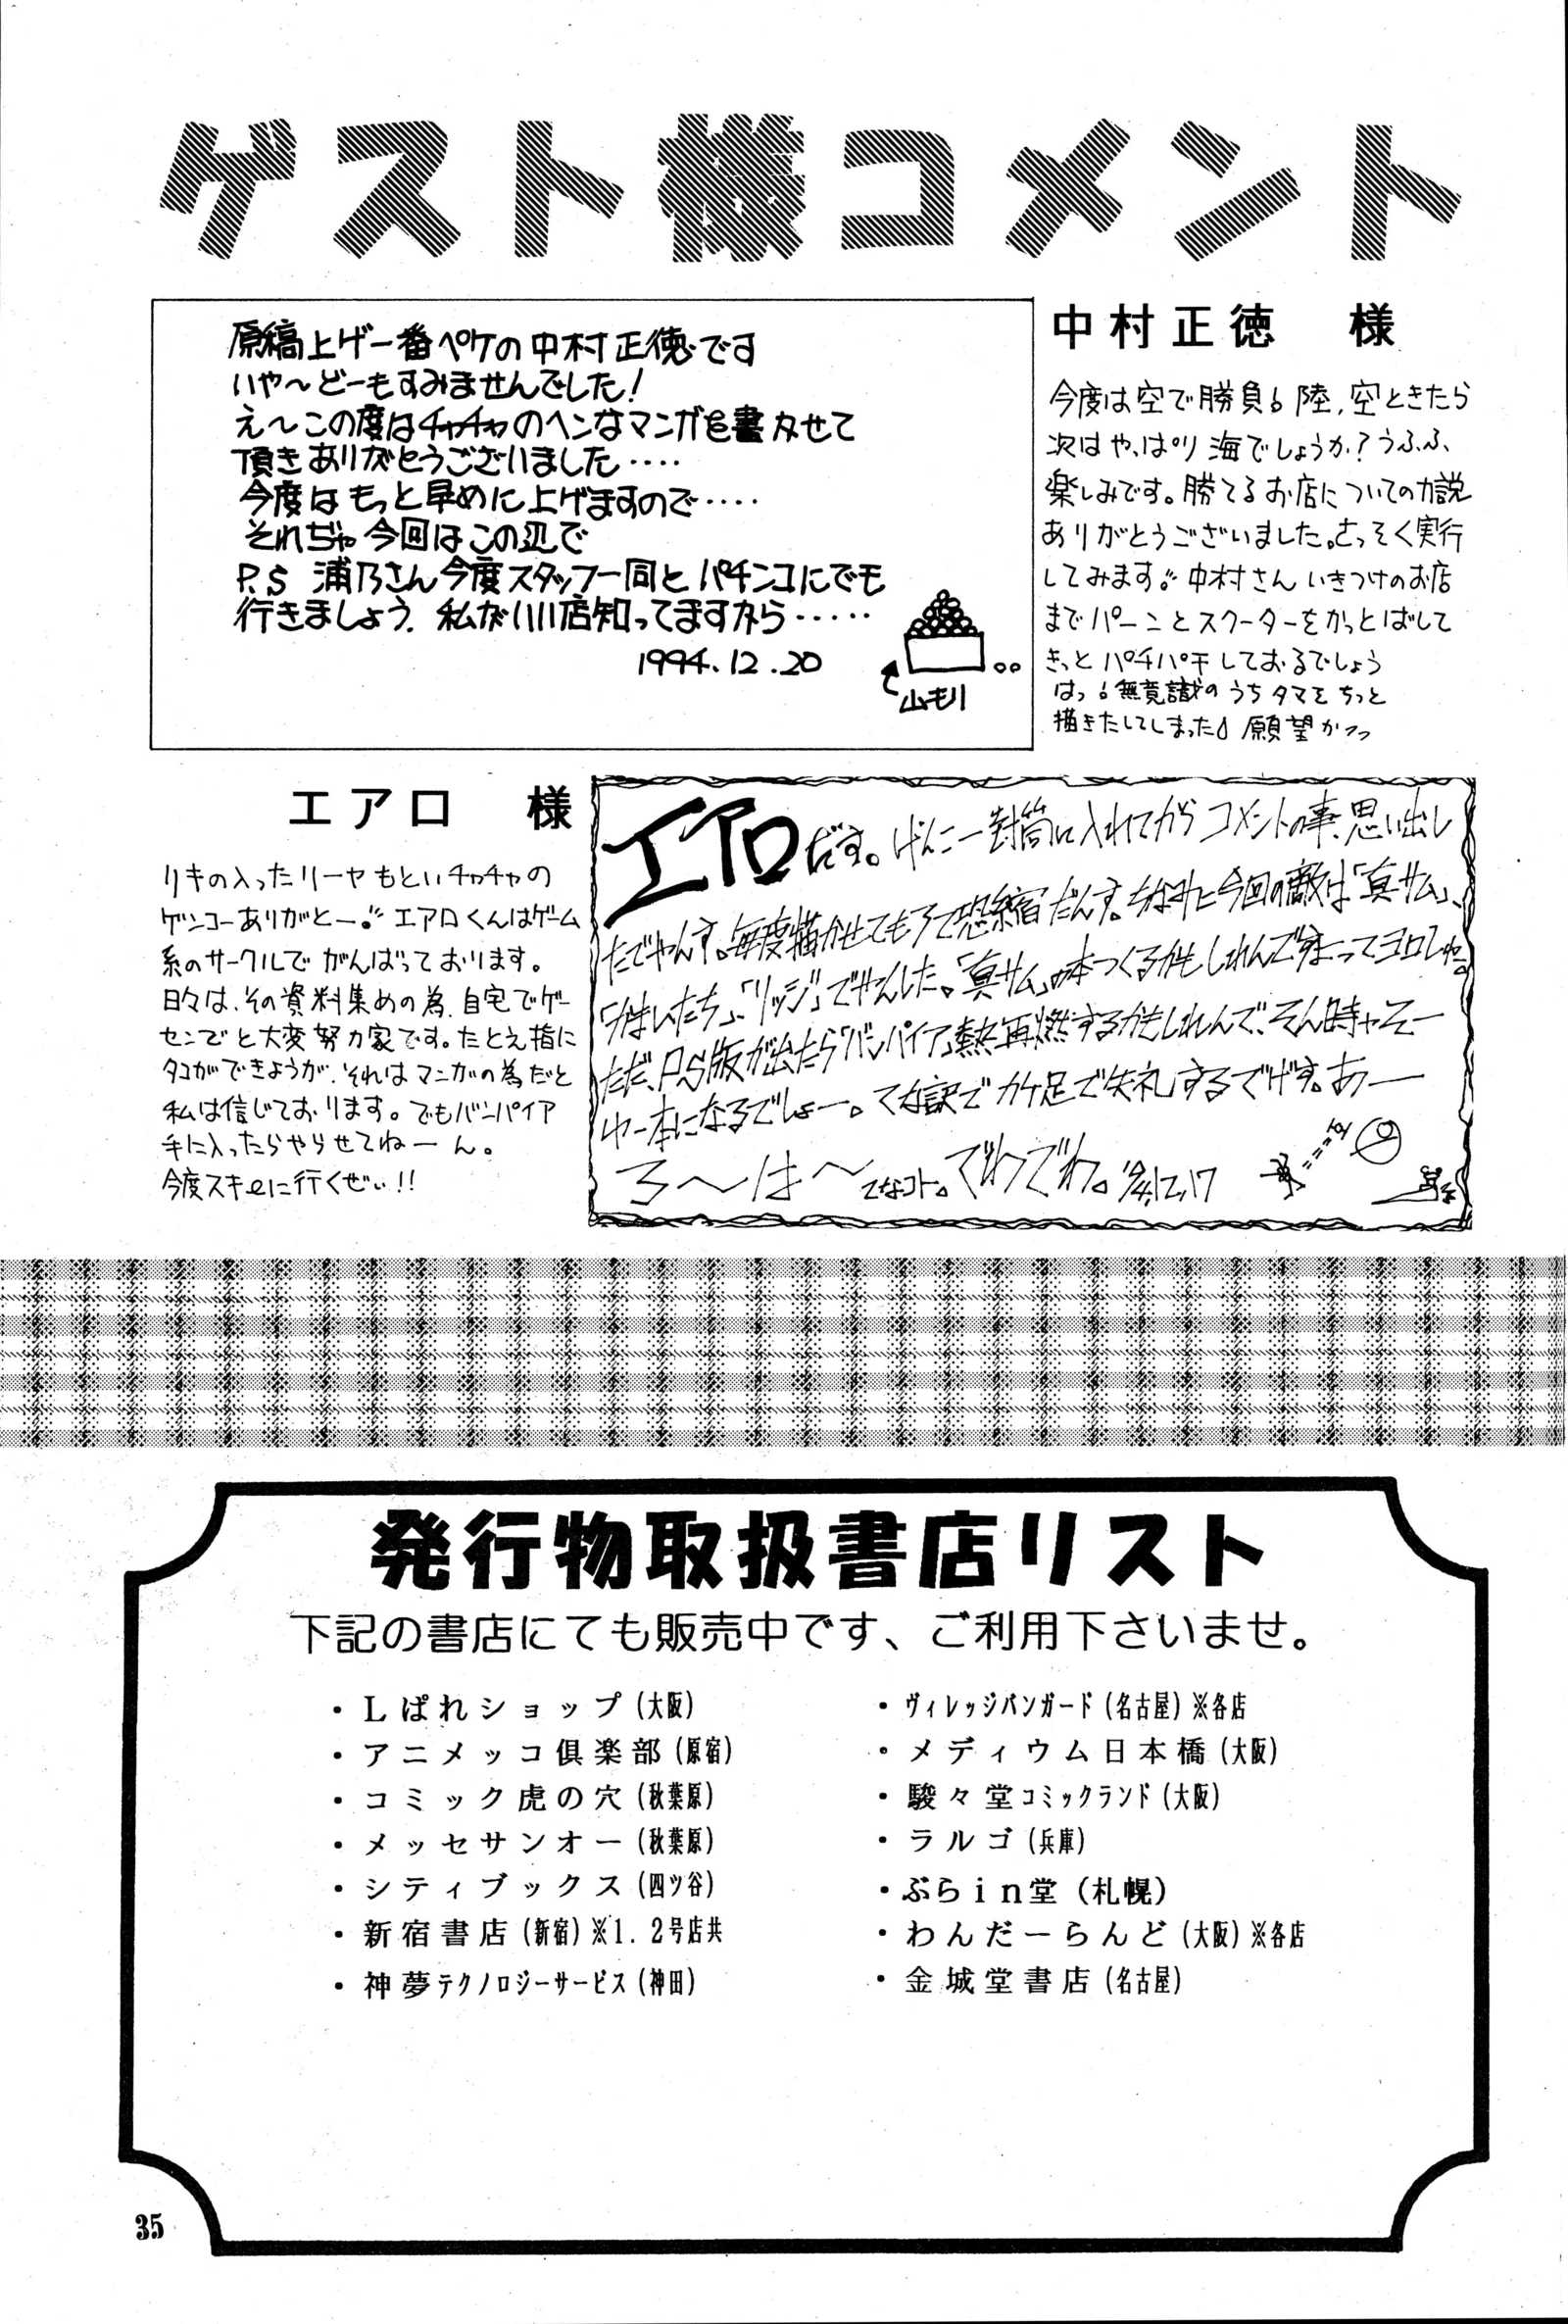 ゲスト様コメント
中村正徳　様
原稿上げ一番ペケの中村正徳です
いや〜どーもすみませんでした!
え〜この度はチャチャのヘンなマンガを書かせて
頂きありがとうございました‥‥
今度はもっと早めに上げますので‥‥
それぢゃ今回はこの辺で
P.S 浦乃さん今度スタッフ一同とパチンコにでも
行きましょう. 私がいい店知ってますから‥‥‥
1994.12.20
山もり
今度は空で勝負! 陸,空ときたら
次はやっぱり海でしょうか?うふふ、
楽しみです。勝てるお店についての力説
ありがとうございました。さっそく実行
してみます!! 中村さんいきつけのお店
までパーンとスクーターをかっとばして
きっとパチパチしておるでしょう
はっ!無意識のうちタマをちっと
描きたしてしまった! 願望かっっ
エアロ　様
エアロだす。げんこー封筒に入れてから コメントの事、思い出し
たでやんす。毎度描かせてもろて恐縮だんす。ちなみに今回の敵は「真サム」、
ただ、P.S版が出たら「バンパイア」熱再燃するかもしれんで、そん時ャそー
ゆー本になるでしょー。てな訳でカケ足で失礼するでげす。あー
ろ〜は〜てなコト。でわでわ。'94,12,17
リキの入ったリーヤもといチャチャの
ゲンコーありがとー!! エアロくんはゲーム
系のサークルでがんばっております。
日々は、その資料集めの為、自宅でゲー
センでと大変努力家です。たとえ指に
タコができようが、それはマンガの為だと
私は信じております。でもバンパイア
手に入ったらやらせてねーん。
今度スキーに行くぜぃ!!
発行物取扱書店リスト
下記の書店にても販売中です、ご利用下さいませ。
・Lぱれショップ(大阪)
・アニメッコ倶楽部(原宿)
・コミック虎の穴(秋葉原)
・メッセサンオー(秋葉原)
・シティブックス(四ツ谷)
・新宿書店(新宿)※1.2号店共
・神夢テクノロジーサービス(神田)
・ヴィレッジバンガード(名古屋)※各店
・メディウム日本橋(大阪)
・駸々堂コミックランド(大阪)
・ラルゴ(兵庫)
・ぶらin堂(札幌)
・わんだーらんど(大阪)※各店
・金城堂書店(名古屋)
35